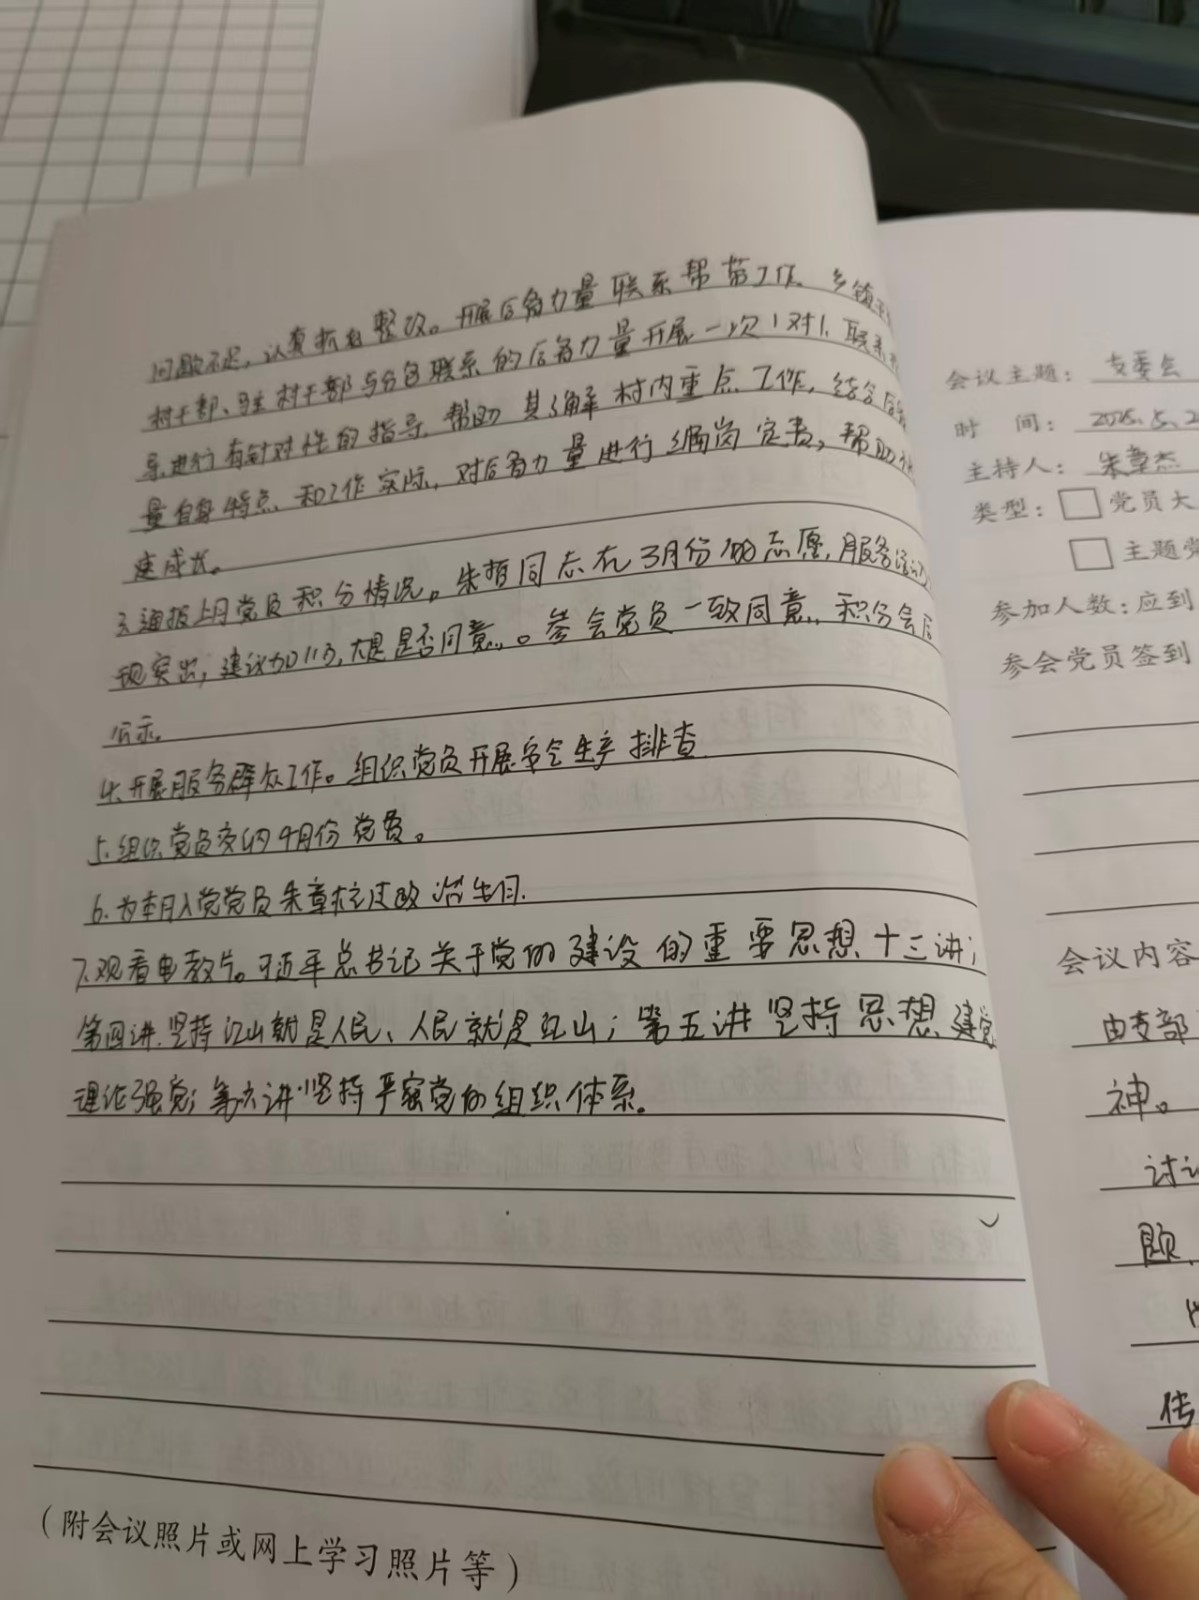 问题不足，认真抓好整改。开展后备力量联系帮带工作。乡镇
村干部、驻村干部与分包联系的后备力量开展一次1对1联系
导，进行有针对性的指导，帮助其了解村内重点工作，结合后备
量自身特点和工作实际，对后备力量进行编岗定责，帮助
速成长。
3.通报上月党员积分情况。朱哲同志在3月份的志愿服务活动
现突出，建议加 大是是否同意。参会党员一致同意，积分会后
公示。
4.开展服务群众工作。组织党员开展安全生产排查
5.组织党员交纳4月份党费。
6.为本月入党党员朱章 过政治生日.
7.观看电教片。习近平总书记关于党的建设的重要思想十三讲;
第四讲.坚持江山就是人民、人民就是江山;第五讲坚持思想建党
理论强党;第六讲坚持严密党的组织体系。
(附会议照片或网上学习照片等)
会议主题: 支委会
时 间: 2025.5.2
主持人: 朱章杰
类型: □党员大
□主题党
参加人数:应到
参会党员签到
会议内容
由支部
神。
讨论
题、
传